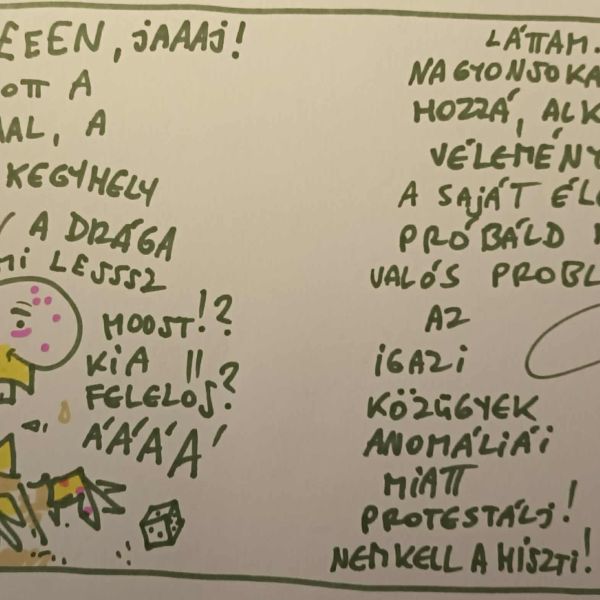 EEEN, jAAAj!
OTT A
AAL, A
KEGYHELY
A DRÁGA
MI LESSSZ
MOOST!?
KI A
FELELŐS?
ÁÁÁÁ
LÁTTAM.
NAGYON SOKA
HOZZÁ, ALK
VÉLEMÉNY
A SAJÁT ÉL
PRÓBÁLD
VALÓS PROBL
AZ
iGAZi
KÖZÜGYEK
ANOMÁLIÁi
MIATT
PROTESTÁLj!
NEM KELL A HISZTI!